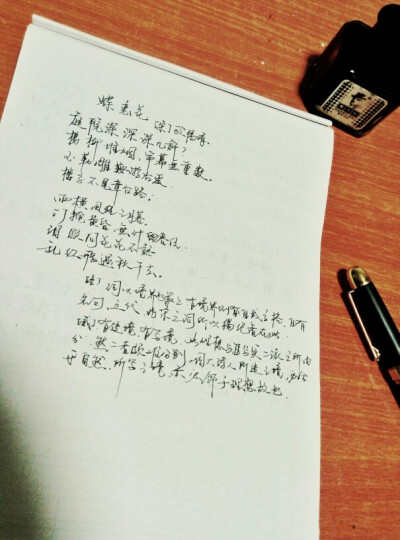 蝶恋花 [宋]欧阳修
庭院深深深几许
杨柳堆烟,帘幕无重数.
玉勒雕鞍游冶处
楼高不见章台路.
雨横风狂三月暮
门掩黄昏 无计留春住
泪眼问花花不语
乱红飞过秋千去.
词以境界为最上 有境界则自成高格,自有
名句,五代、北宋之词所以独绝者在此.
有造境,有写境,此理想与写实二派之所由
分.然二者颇难分别,因大诗人所造之境,必合
乎自然,所写之境,亦必邻于理想故也.